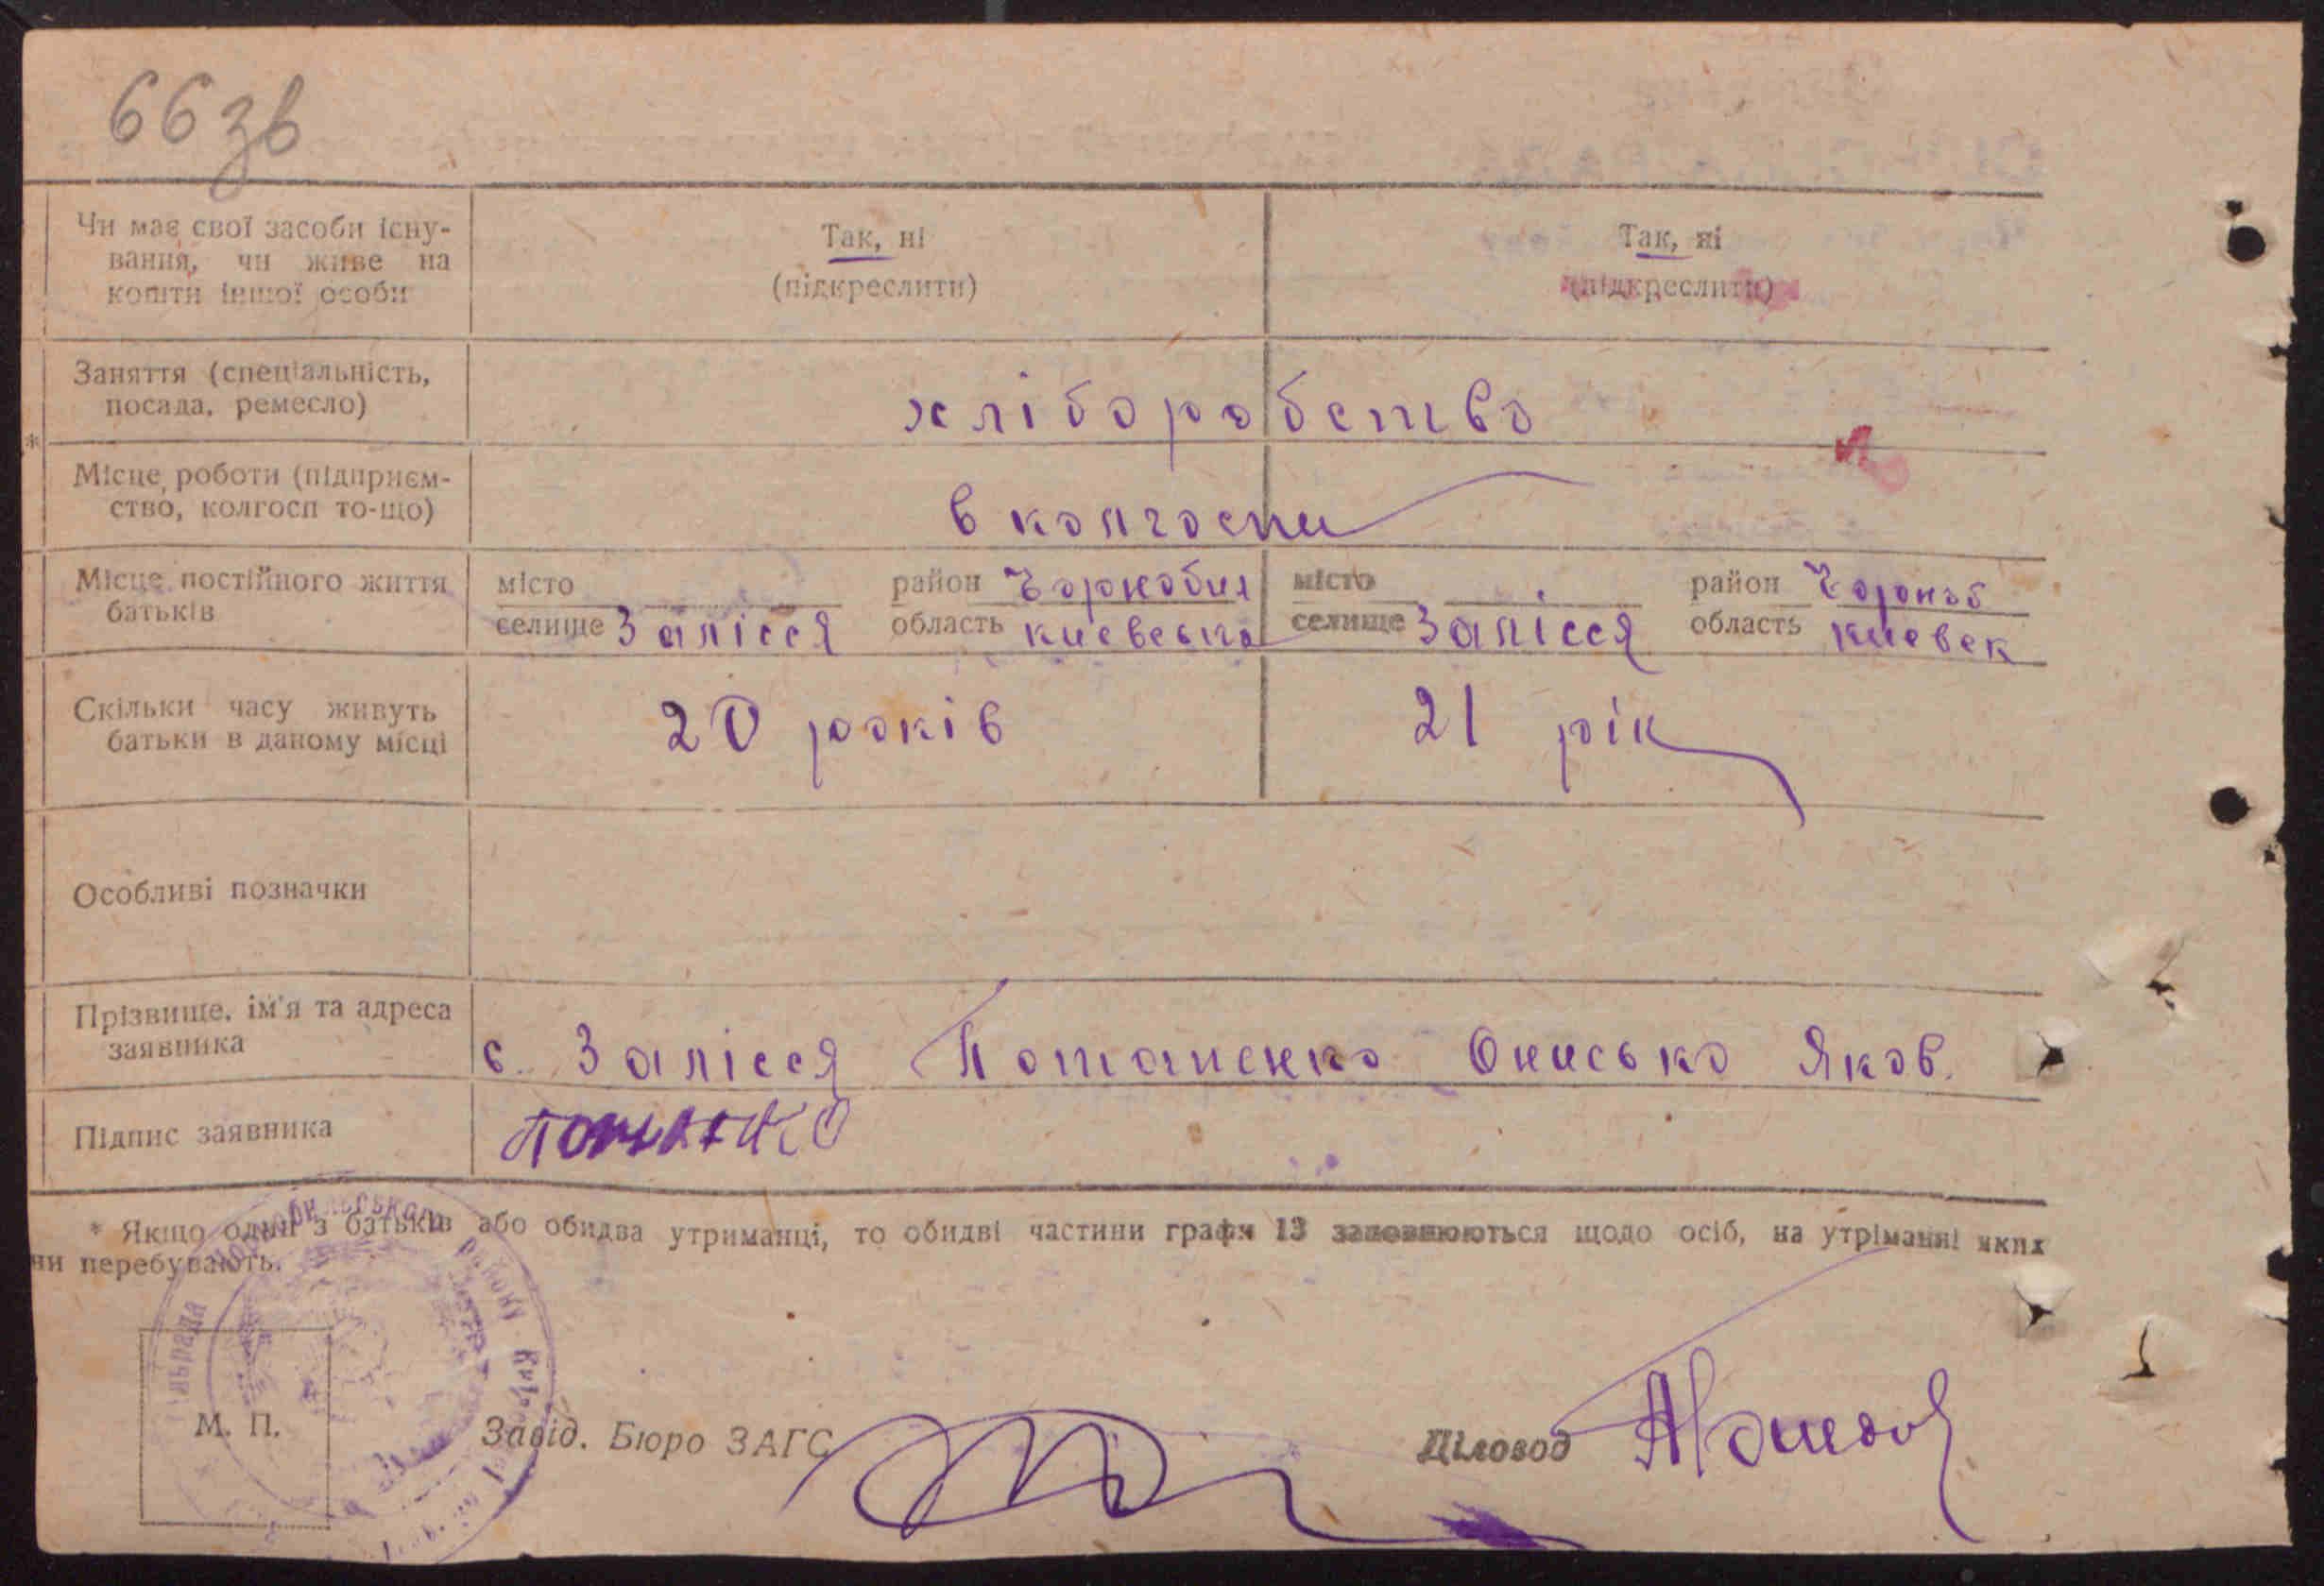 66зв
Чи має свої засоби існу-
вання, чи живе на
кошти іншої особи
Так, ні
(підкреслити)
Так, ні
(підкреслити)
Заняття (спеціальність,
посада, ремесло)
хліборобство
*
Місце роботи (підприєм-
ство, колгосп то-що)
в колгоспи
Місце постійного життя
батьків
місто
селище Залісся
район Чорнобил
область киевська
місто
селище Залісся
район Чорноб
область киевск
Скільки часу живуть
батьки в даному місці
20 років
21 рік
Особливі позначки
Прізвище, ім'я та адреса
заявника
с. Залісся Потапенко Онисько Яков.
Підпис заявника
* Якщо один з батьків або обидва утриманці, то обидві частини графи 13 заповнюються щодо осіб, на утріманні яких
ни перебувають.
М. П.
Завід. Бюро ЗАГС
Діловод